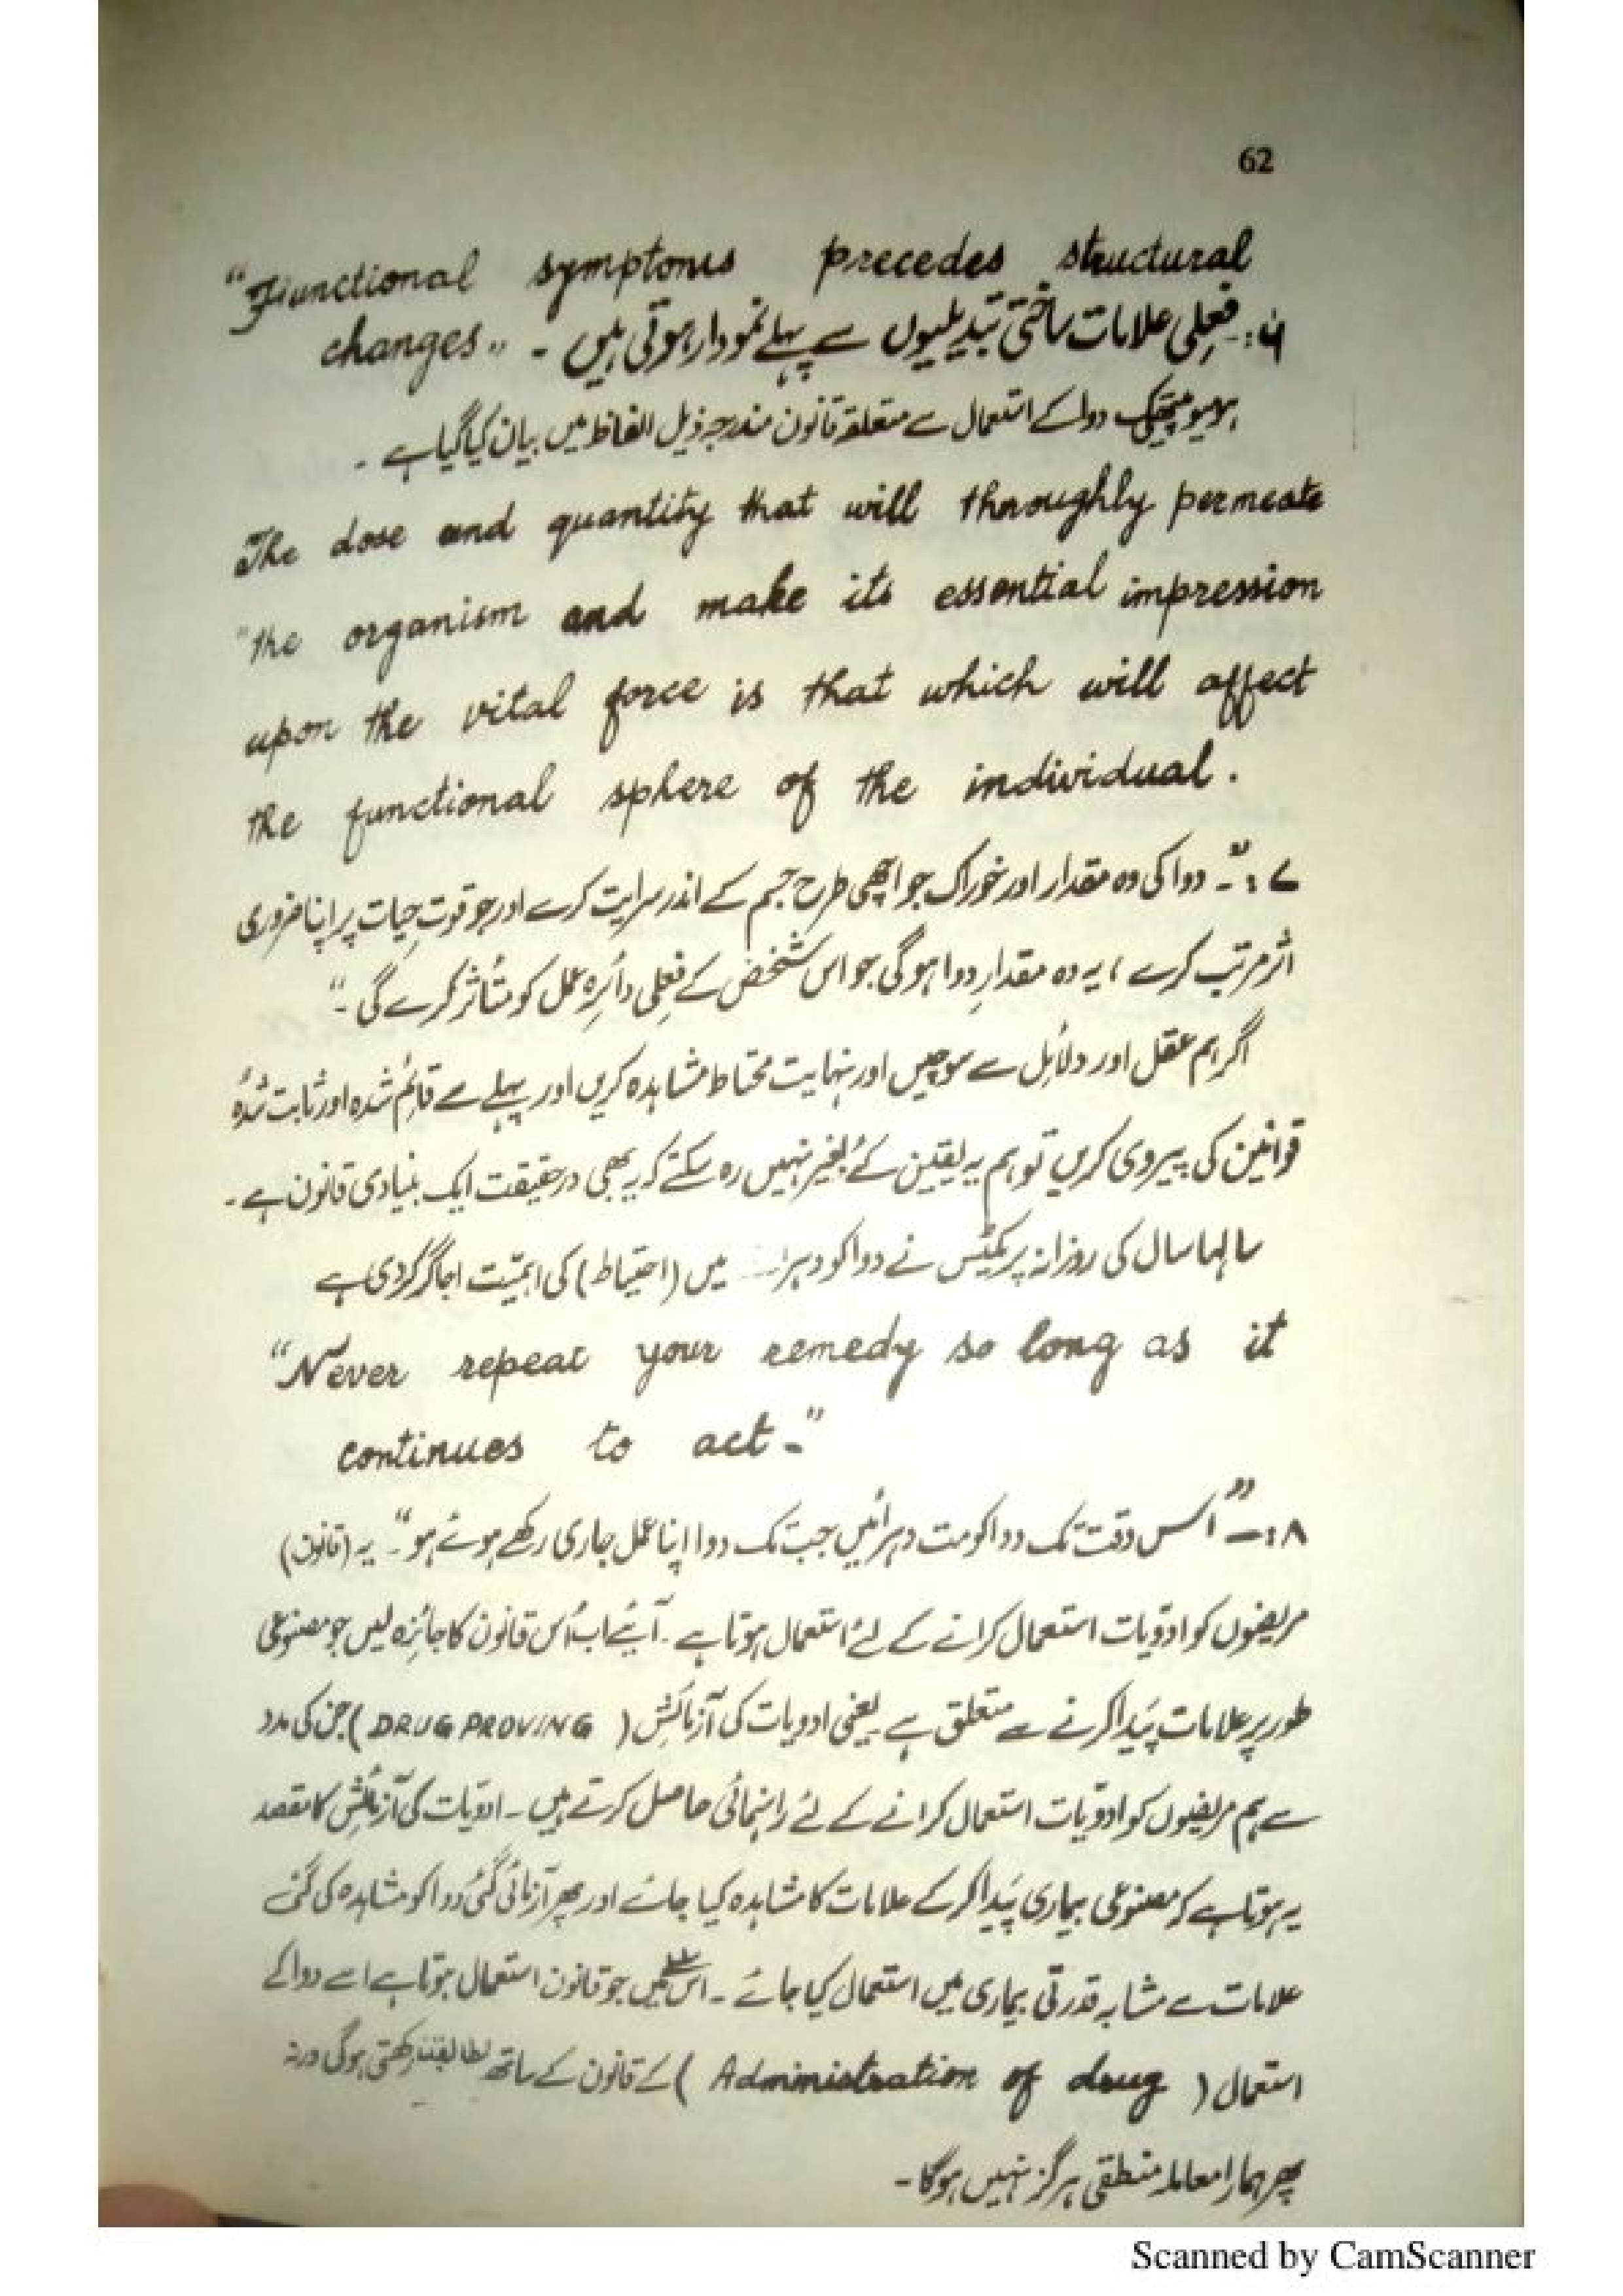 62
"Functional symptoms precedes structural
changes"
۶:۔ فعلی علامات ساختی تبدیلیوں سے پہلے نمودار ہوتی ہیں ۔
ہومیوپیتھک دوا کے استعمال سے متعلق قانون مندرجہ ذیل الفاظ میں بیان کیا گیا ہے ۔
The dose and quantity that will thoroughly permeate
"the organism and make its essential impression
upon the vital force is that which will affect
the functional sphere of the individual.
۷:۔" دوا کی وہ مقدار اور خوراک جو اچھی طرح جسم کے اندر سرایت کرے اور جو قوتِ حیات پر اپنا ضروری
اثر مرتب کرے ، یہ وہ مقدارِ دوا ہوگی جو اس شخص کے فعلی دائرہ عمل کو متاثر کرے گی ۔"
اگر ہم عقل اور دلائل سے سوچیں اور نہایت محتاط مشاہدہ کریں اور پہلے سے قائم شدہ اور ثابت شدہ
قوانین کی پیروی کریں تو ہم یہ یقین کئے بغیر نہیں رہ سکتے کہ یہ بھی درحقیقت ایک بنیادی قانون ہے ۔
سالہا سال کی روزانہ پریکٹس نے دوا کو میں (احتیاط) کی اہمیّت اجاگر کر دی ہے
"Never repeat your remedy so long as it
continues to act-"
۸:۔" اُس وقت تک دوا کو مت دہرائیں جب تک دوا اپنا عمل جاری رکھے ہوئے ہو"۔ یہ (قانون)
مریضوں کو ادویات استعمال کرانے کے لئے استعمال ہوتا ہے ۔ آئیے اب اُس قانون کا جائزہ لیں جو مصنوعی
طور پر علامات پَیدا کرنے سے متعلق ہے یعنی ادویات کی آزمائش (DRUG PROVING) جن کی مدد
سے ہم مریضوں کو ادویات استعمال کرانے کے لئے راہنمائی حاصل کرتے ہیں ۔ ادویات کی آزمائش کا مقصد
یہ ہوتا ہے کہ مصنوعی بیماری پَیدا کر کے علامات کا مشاہدہ کیا جائے اور پھر آزمائی گئی دوا کو مشاہدہ کی گئی
علامات سے مشابہ قدرتی بیماری میں استعمال کیا جائے ۔ اس میں جو قانون استعمال ہوتا ہے اسے دوا کے
استعمال (Administration of drug) کے قانون کے ساتھ رکھتی ہوگی ورنہ
پھر ہمارا معاملہ منطقی ہرگز نہیں ہوگا ۔
Scanned by CamScanner